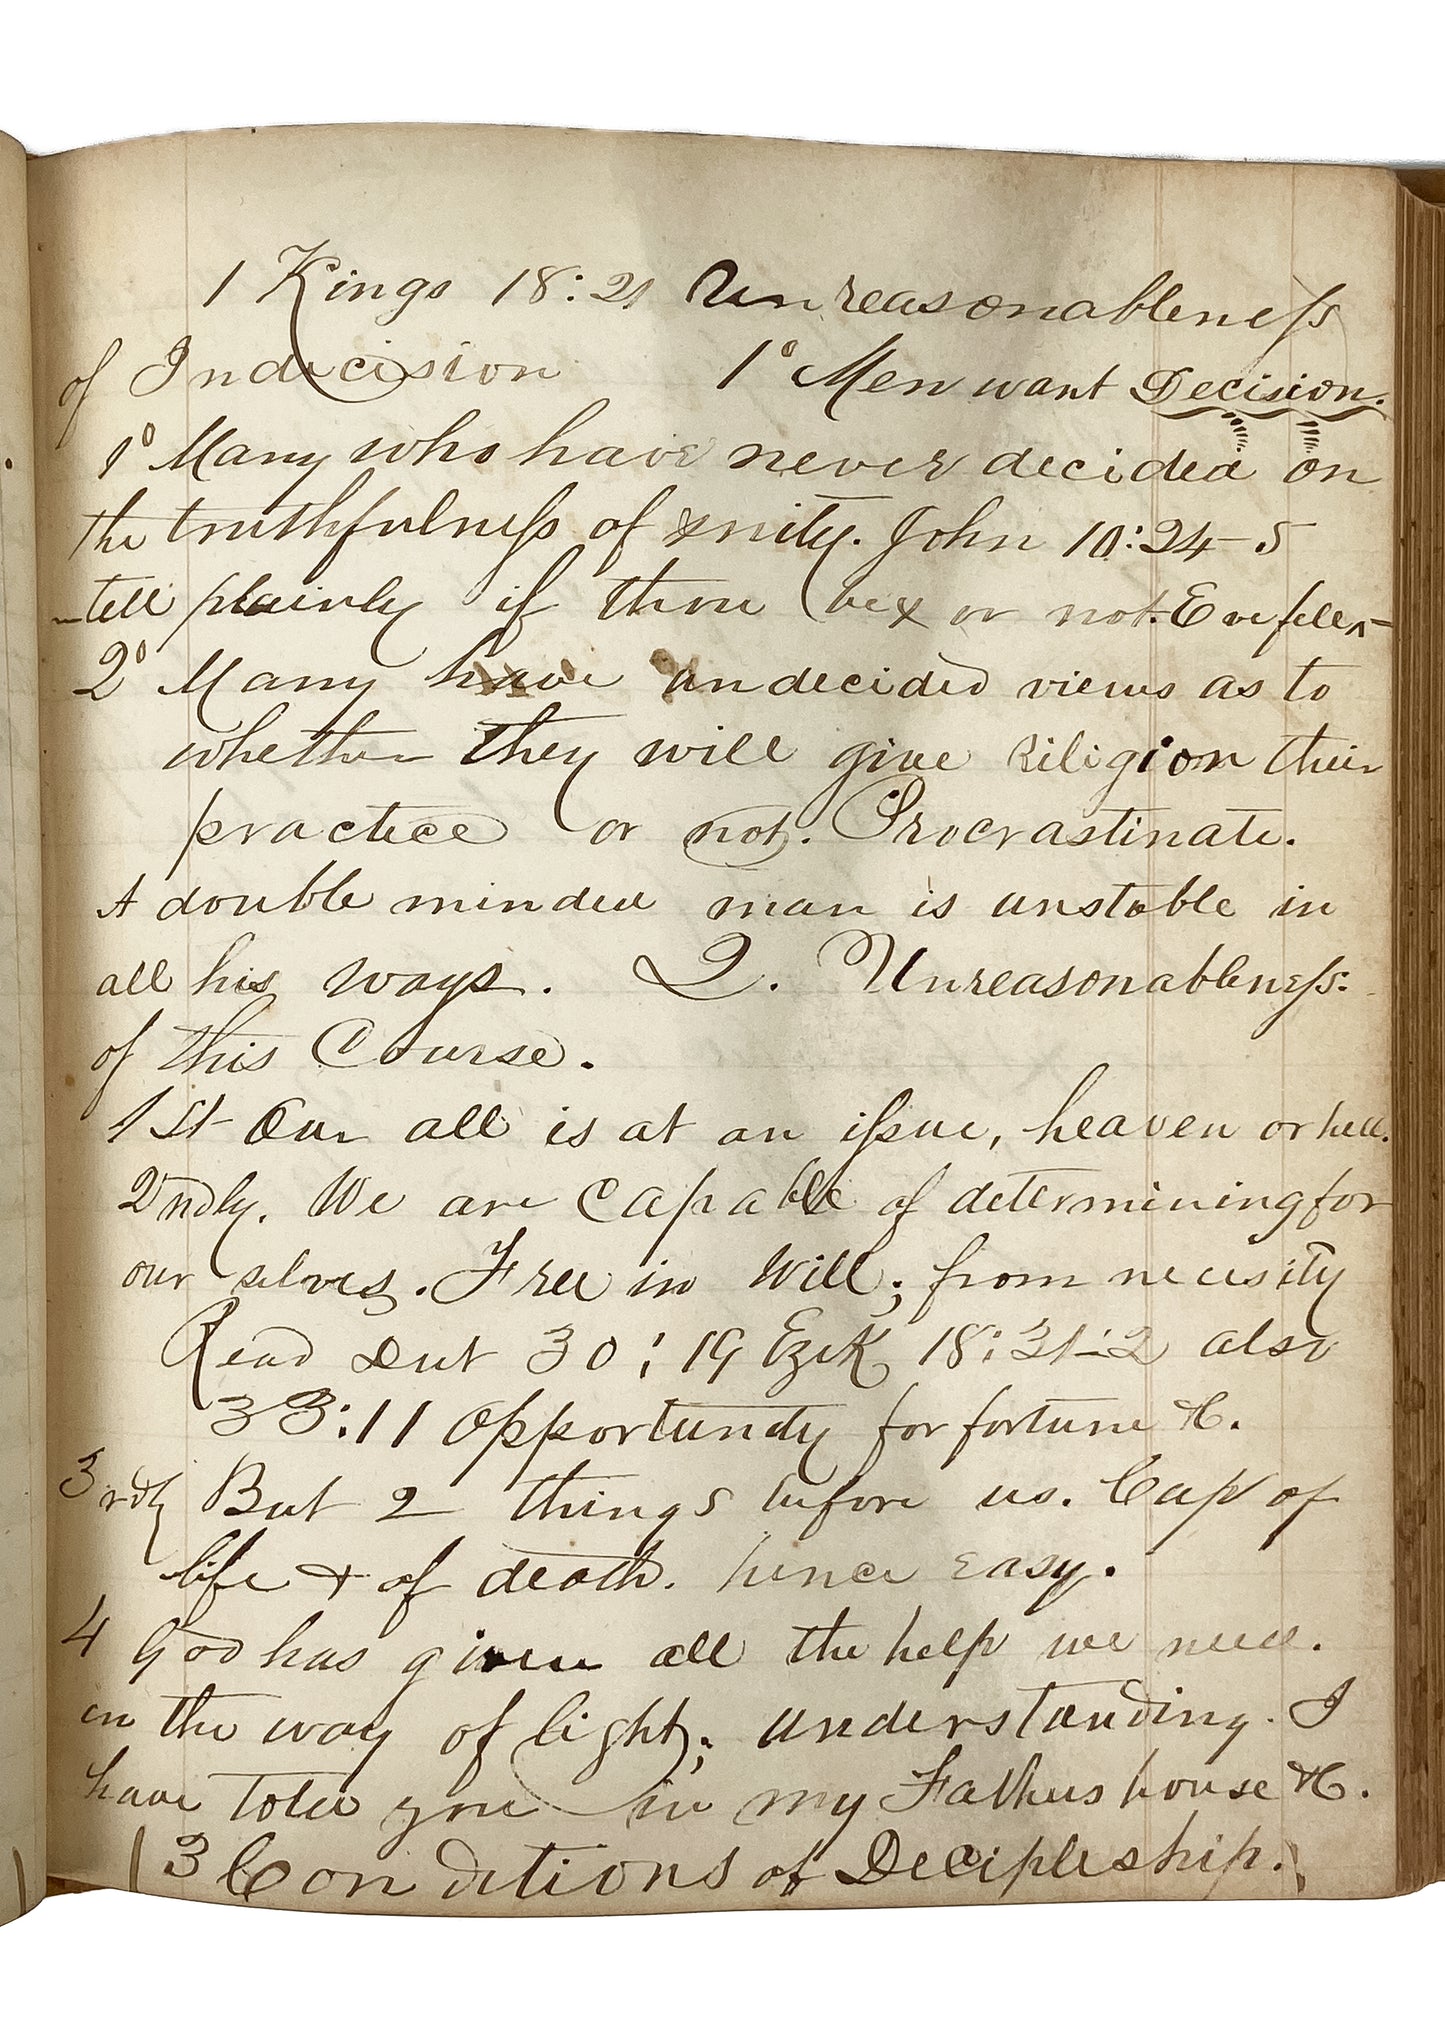 1 Kings 18:21 Unreasonableness
of Indecision 1° Men want Decision.
1° Many who have never decided on
the truthfulness of xnity. John 10:24-5
tell plainly if thou be x or not.
2° Many have undecided views as to
whether they will give Religion their
practice or not. Procrastinate.
A double minded man is unstable in
all his ways. 2. Unreasonableness.
of this Course.
1st Our all is at an issue, heaven or hell.
2ndly. We are Capable of determining for
our selves. Free in Will; from necesity
Read Deut 30:19 Ezek 18:31-2 also
33:11 Opportunity for fortune &C.
3rdly But 2 things before us. Cup of
life & of death. hence easy.
4 God has given all the help we need.
in the way of light; understanding. I
have told you in my Fathers house &C.
3 Conditions of Decipleship.